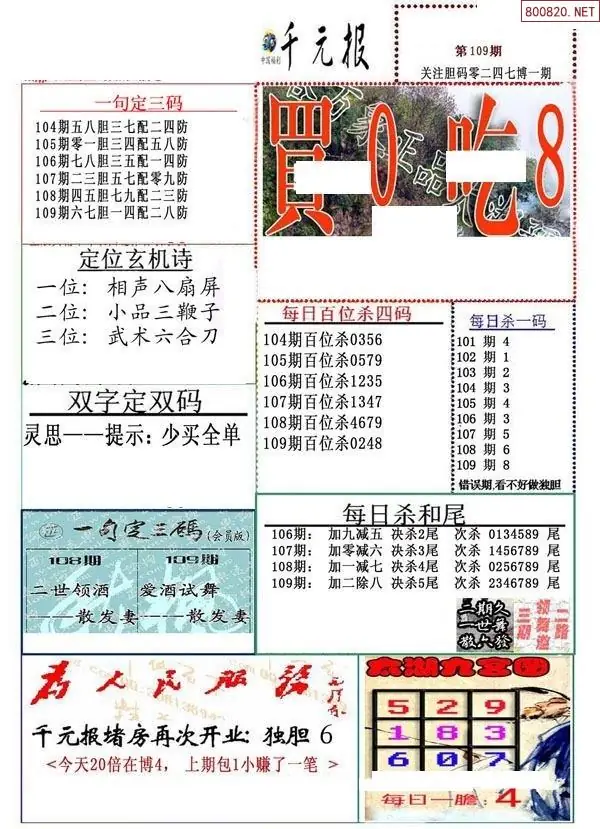 800820.NET
中国福彩
千元报
第109期
关注胆码零二四七博一期
一句定三码
104期五八胆三七配二四防
105期零一胆三四配五八防
106期七八胆三五配一四防
107期二三胆五七配零九防
108期四五胆七九配二三防
109期六七胆一四配二八防
買0吃8
定位玄机诗
一位: 相声八扇屏
二位: 小品三鞭子
三位: 武术六合刀
每日百位杀四码
104期百位杀0356
105期百位杀0579
106期百位杀1235
107期百位杀1347
108期百位杀4679
109期百位杀0248
每日杀一码
101 期 4
102 期 1
103 期 2
104 期 3
105 期 4
106 期 3
107 期 5
108 期 6
109 期 8
错误期,看不好做独胆
双字定双码
灵思——提示: 少买全单
一句定三碼(会员版)
108期
二世领酒
——散发妻
109期
爱酒试舞
——散发妻
每日杀和尾
106期: 加九减五 决杀2尾 次杀 0134589 尾
107期: 加零减六 决杀3尾 次杀 1456789 尾
108期: 加一减七 决杀4尾 次杀 0256789 尾
109期: 加二除八 决杀5尾 次杀 2346789 尾
二期久
一世舞
散六發
三期
领舞邀
二路
为人民服务
千元报堵房再次开业: 独胆 6
<今天20倍在博4, 上期包1小赚了一笔 >
太湖九宫图
5 2 9
1 8 3
6 0 7
每日一膽: 4